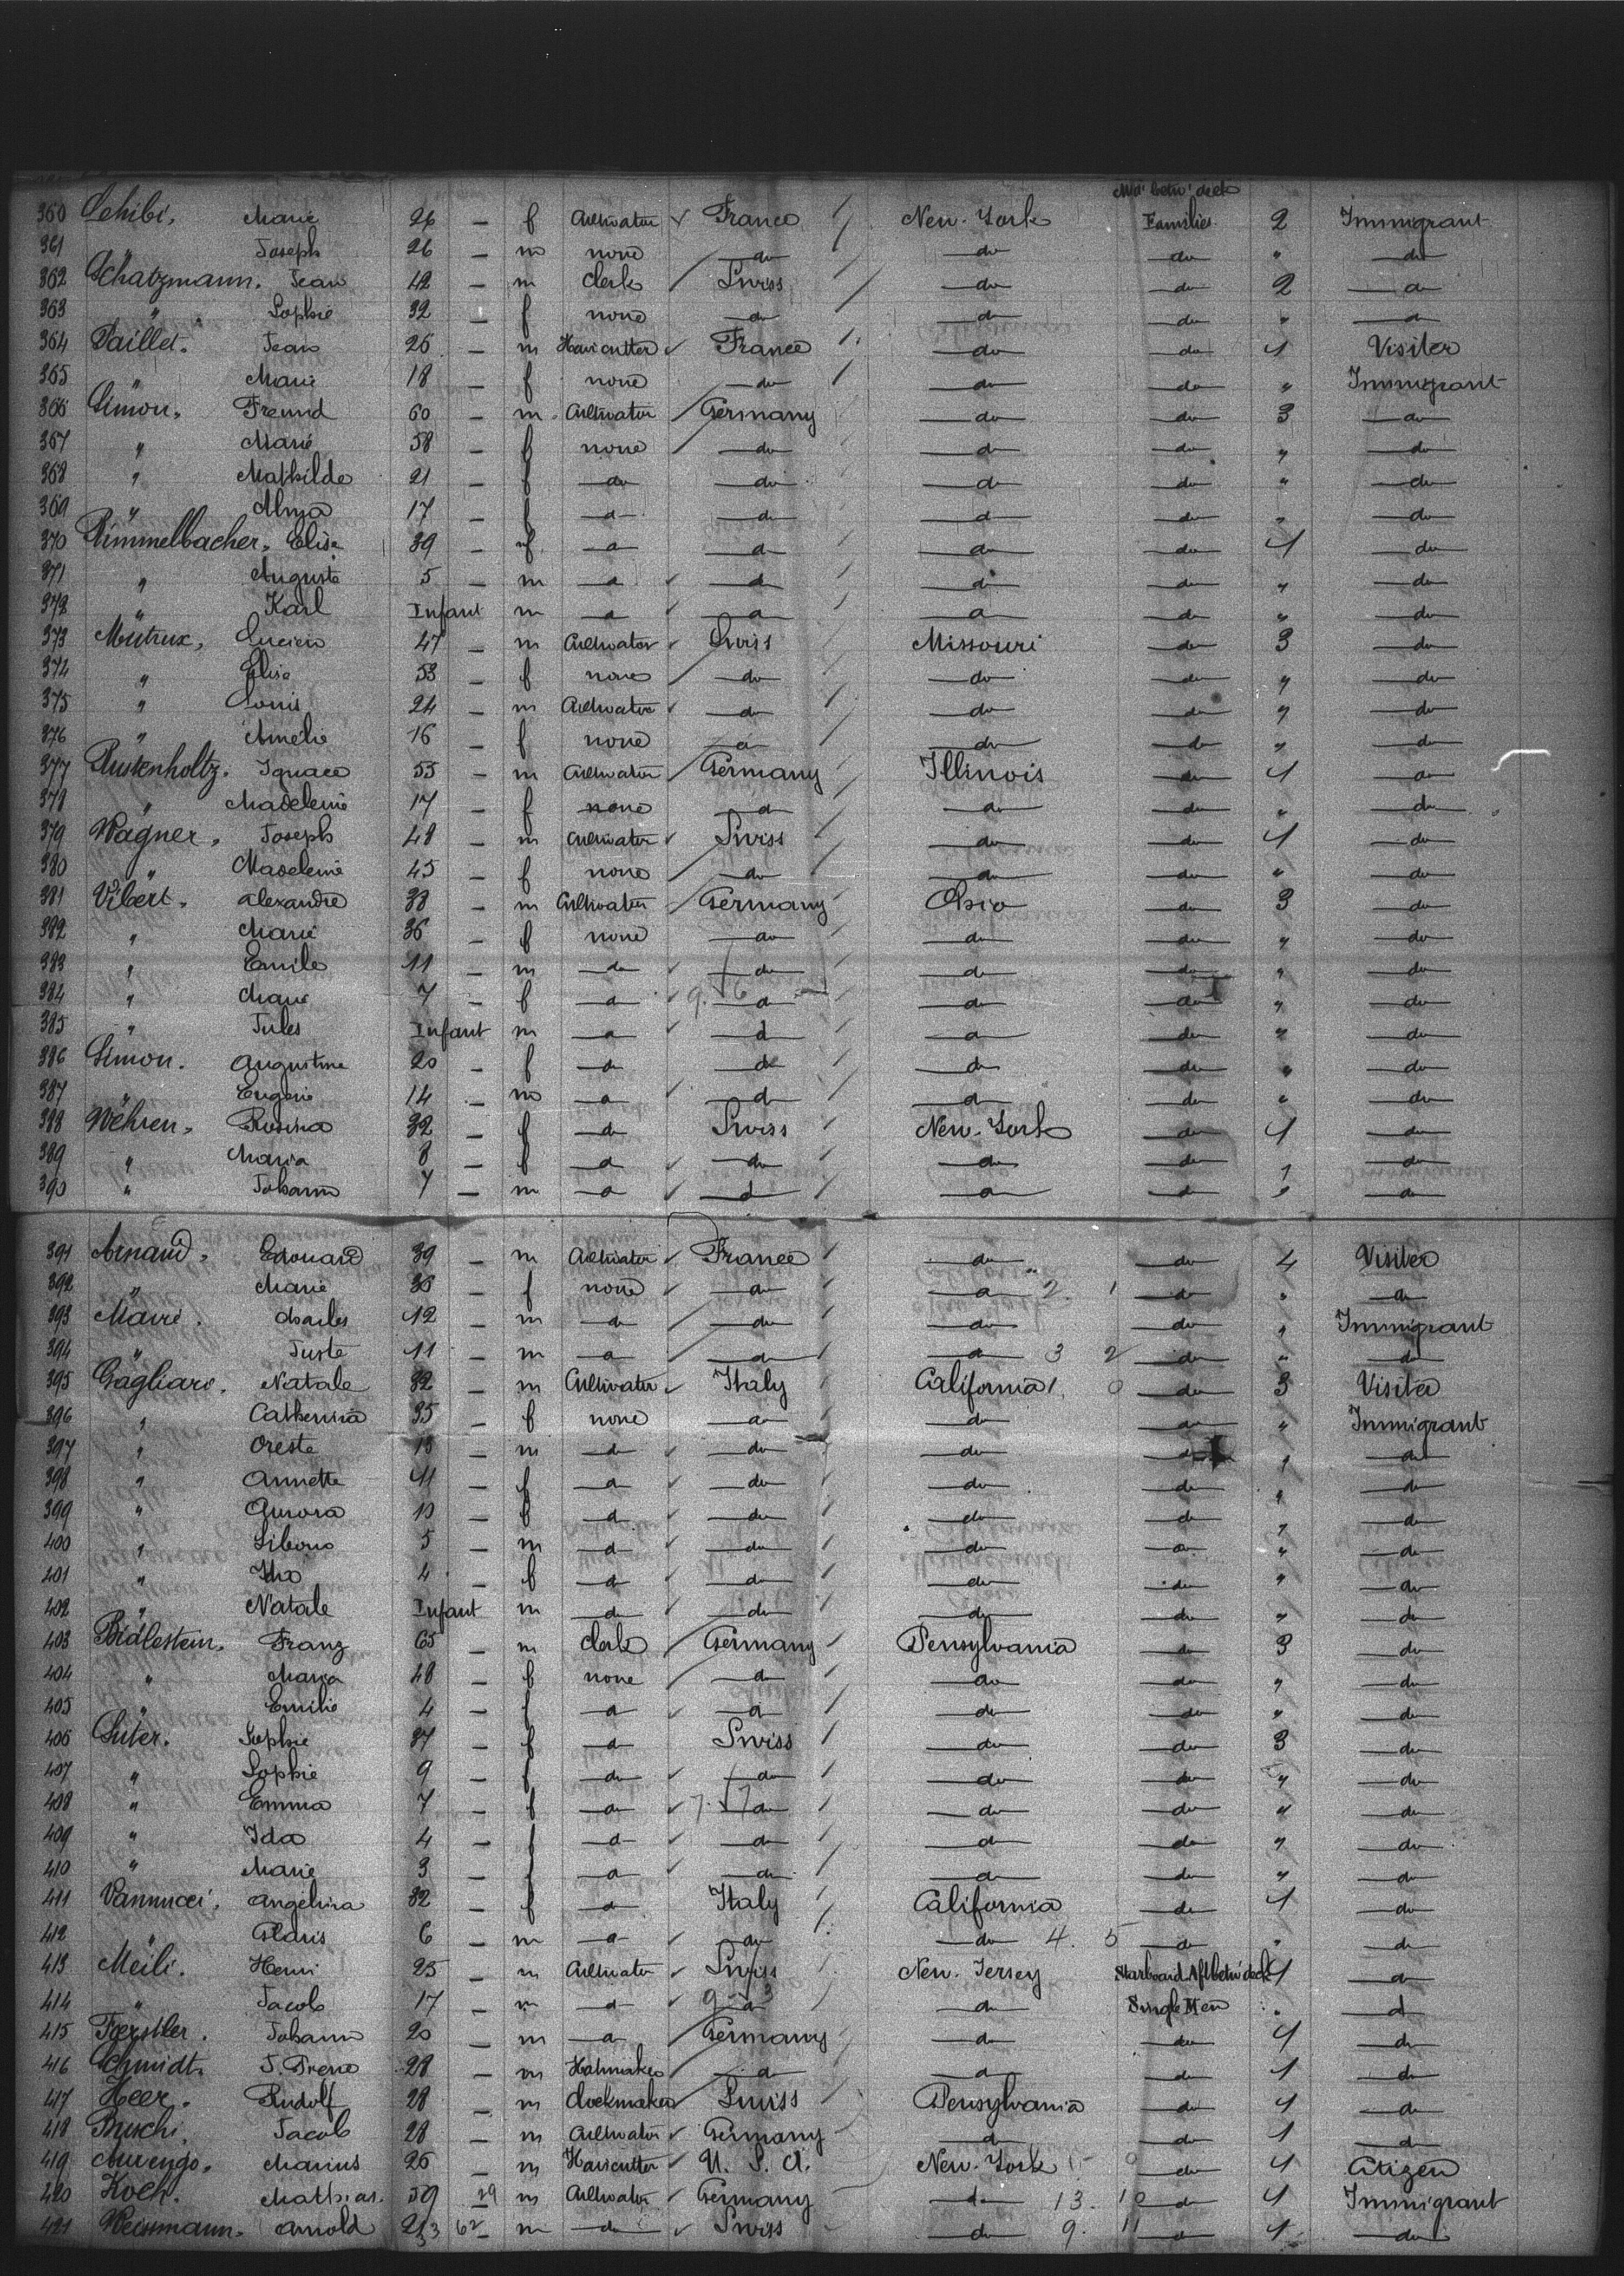 Mid' betw' deck
360 Schibi, Marie 26 — f Cultivator France New-York Families 2 Immigrant
361 Joseph 26 — m none do do do " do
362 Schatzmann. Jean 42 — m Clerk Swiss do do 2 do
363 " Sophie 32 — f none do do do " do
364 Paillet. Jean 26 — m Haircutter France do do 1 Visiter
365 " Marie 18 — f none do do do " Immigrant
366 Simon, Freund 60 — m Cultivator Germany do do 3 do
367 " Marie 58 — f none do do do " do
368 " Mathilde 21 — f do do do do " do
369 " 17 — f do do do do " do
370 Rimmelbacher. Elise 39 — f do do do do 1 do
371 " Auguste 5 — m do do do do " do
372 " Karl Infant m do do do do " do
373 Mutrux, Lucien 47 — m Cultivator Swiss Missouri do 3 do
374 " Elise 53 — f none do do do " do
375 " Louis 24 — m Cultivator do do do " do
376 " Amélie 16 — f none do do do " do
377 Rustenholtz. Ignace 55 — m Cultivator Germany Illinois do 1 do
378 " Madeleine 17 — f none do do do " do
379 Wagner, Joseph 48 — m Cultivator Swiss do do 1 do
380 " Madeleine 45 — f none do do do " do
381 Vibert. Alexandre 38 — m Cultivator Germany Ohio do 3 do
382 " Marie 36 — f none do do do " do
383 " Emile 11 — m do do do do " do
384 " Marie 7 — f do do do do " do
385 " Jules Infant m do do do do " do
386 Simon. Augustine 20 — f do do do do " do
387 " Eugene 14 — m do do do do " do
388 Wehren, Rosina 32 — f do Swiss New-York do 1 do
389 " Maria 8 — f do do do do " do
390 " Johann 7 — m do do do do " do
391 Arnaud, Edouard 39 — m Cultivator France do do 4 Visiter
392 " Marie 36 — f none do do 2. 1 do " do
393 Mairé. Charles 12 — m do do do do " Immigrant
394 " Juste 11 — m do do do 3 2 do " do
395 Gagliaro, Natale 32 — m Cultivator Italy California 1. 0 do 3 Visiter
396 " Catherina 35 — f none do do do " Immigrant
397 " Oreste 13 — m do do do do " do
398 " Annetta 11 — f do do do do " do
399 " Aurora 10 — f do do do do " do
400 " Liborio 5 — m do do do do " do
401 " Ida 4 — f do do do do " do
402 " Natale Infant m do do do do " do
403 Bidlestein, Franz 65 — m Clerk Germany Pensylvania do 3 do
404 " Maria 48 — f none do do do " do
405 " Emilie 4 — f do do do do " do
406 Suter. Sophie 37 — f do Swiss do do 3 do
407 " Sophie 9 — f do do do do " do
408 " Emma 7 — f do do do do " do
409 " Ida 4 — f do do do do " do
410 " Marie 3 — f do do do do " do
411 Vannucci, Angelina 32 — f do Italy California do 1 do
412 " 6 — m do do do 4. 5 do " do
413 Meili. Henri 25 — m Cultivator Swiss New-Jersey Starboard Aft betw' deck 1 do
414 " Jacob 17 — m do do do Single Men " do
415 Foerstler. Johann 20 — m do Germany do do 1 do
416 Schmidt. J. 28 — m Hatmaker do do do 1 do
417 Heer. Rudolf 28 — m Clockmaker Swiss Pensylvania do 1 do
418 Buschi. Jacob 28 — m Cultivator Germany do do 1 do
419 Aurengo, Marius 26 — m Haircutter U. S. A. New-York do 1 Citizen
420 Koch. Mathias. 59 29 m Cultivator Germany do 13. 10 do 1 Immigrant
421 Weissmann. Arnold 23 62 — m do Swiss do 9. 11 do 1 do